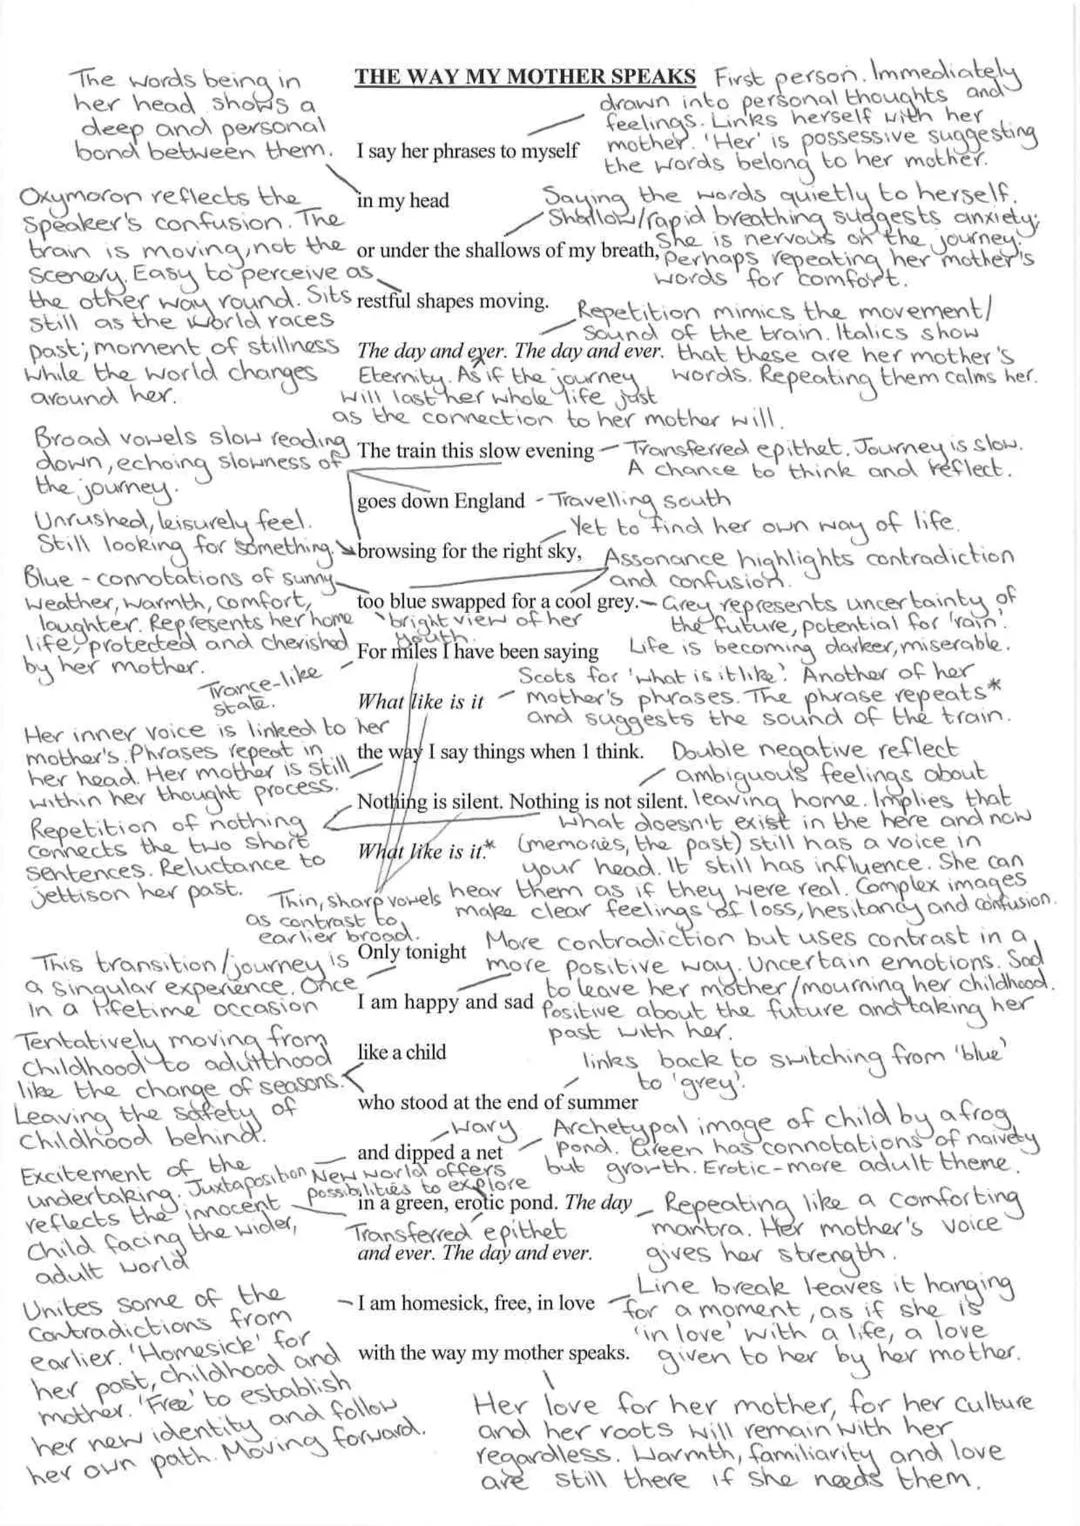 THE WAY MY MOTHER SPEAKS
The words being in
her head shows a
deep and personal
bond between them.
First person. Immediately
drawn into personal thoughts and
feelings. Links herself with her
mother. 'Her' is possessive suggesting
the words belong to her mother.
I say her phrases to myself
in my head
Oxymoron reflects the
speaker's confusion. The
train is moving, not the
scenery. Easy to perceive as
the other way round. Sits
still as the world races
past; moment of stillness
while the world changes
around her.
Saying the words quietly to herself.
Shallow/rapid breathing suggests anxiety;
She is nervous on the journey.
Perhaps repeating her mother's
words for comfort.
or under the shallows of my breath,
restful shapes moving.
Repetition mimics the movement/
sound of the train. Italics show
that these are her mother's
words. Repeating them calms her.
The day and ever. The day and ever.
Eternity. As if the journey
will last her whole life just
as the connection to her mother will.
Broad vowels slow reading
down, echoing slowness of
the journey.
The train this slow evening
Transferred epithet. Journey is slow.
A chance to think and reflect.
goes down England - Travelling south
Unrushed, leisurely feel.
Still looking for something.
Yet to find her own way of life.
browsing for the right sky,
Assonance highlights contradiction
and confusion.
Blue - connotations of sunny
weather, warmth, comfort,
laughter. Represents her home
life, protected and cherished
by her mother.
too blue swapped for a cool grey.
bright view of her
youth.
Grey represents uncertainty of
the future, potential for 'rain'.
Life is becoming darker, miserable.
For miles I have been saying
Trance-like
state.
What like is it
Scots for 'what is it like'. Another of her
mother's phrases. The phrase repeats*
and suggests the sound of the train.
Her inner voice is linked to her
mother's. Phrases repeat in
her head. Her mother is still
within her thought process.
the way I say things when I think.
Double negative reflect
ambiguous feelings about
leaving home. Implies that
what doesn't exist in the here and now
(memories, the past) still has a voice in
your head. It still has influence. She can
hear them as if they were real. Complex images
make clear feelings of loss, hesitancy and confusion.
Nothing is silent. Nothing is not silent.
Repetition of nothing
connects the two short
sentences. Reluctance to
jettison her past.
What like is it.*
Thin, sharp vowels
as contrast to
earlier broad.
Only tonight
This transition/journey is
a singular experience. Once
in a lifetime occasion
More contradiction but uses contrast in a
more positive way. Uncertain emotions. Sad
to leave her mother/mourning her childhood.
Positive about the future and taking her
past with her.
I am happy and sad
like a child
Tentatively moving from
childhood to adulthood
like the change of seasons.
Leaving the safety of
childhood behind.
links back to switching from 'blue'
to 'grey'.
who stood at the end of summer
Wary
Archetypal image of child by a frog
pond. Green has connotations of naivety
but growth. Erotic - more adult theme.
and dipped a net
Excitement of the
undertaking. Juxtaposition
reflects the innocent
child facing the wider,
adult world
New world offers
possibilities to explore
in a green, erotic pond. The day
Transferred epithet
and ever. The day and ever.
Repeating like a comforting
mantra. Her mother's voice
gives her strength.
I am homesick, free, in love
Line break leaves it hanging
for a moment, as if she is
'in love' with a life, a love
given to her by her mother.
Unites some of the
contradictions from
earlier. 'Homesick' for
her past, childhood and
mother. 'Free' to establish
her new identity and follow
her own path. Moving forward.
with the way my mother speaks.
Her love for her mother, for her culture
and her roots will remain with her
regardless. Warmth, familiarity and love
are still there if she needs them.